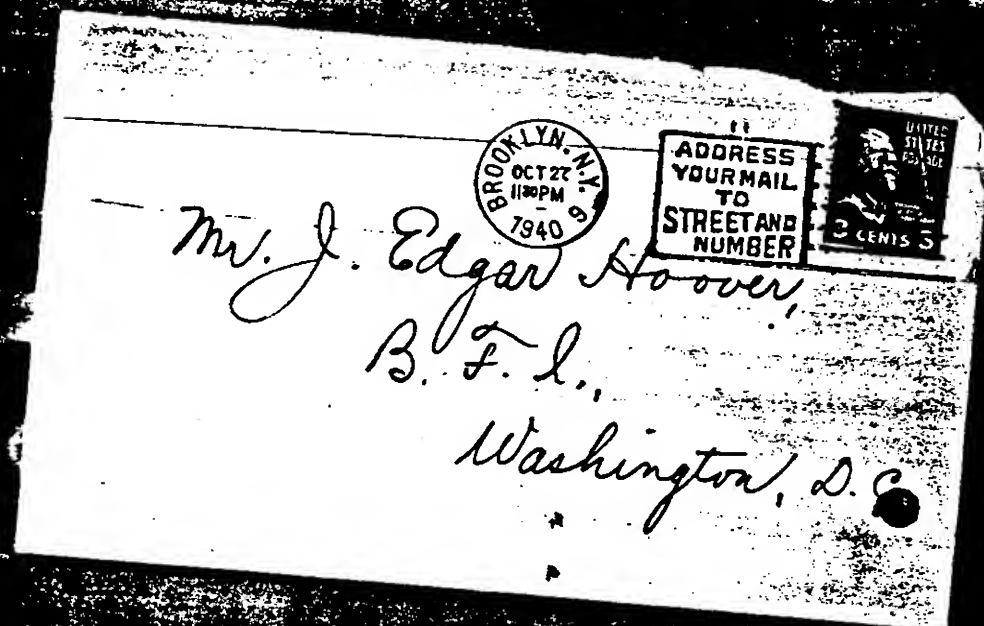 BROOKLYN, N.Y. 9
OCT 27
11 30 PM
1940
ADDRESS
YOUR MAIL
TO
STREET AND
NUMBER
UNITED
STATES
POSTAGE
3 CENTS 3
Mr. J. Edgar Hoover,
B. F. I.,
Washington, D.C.